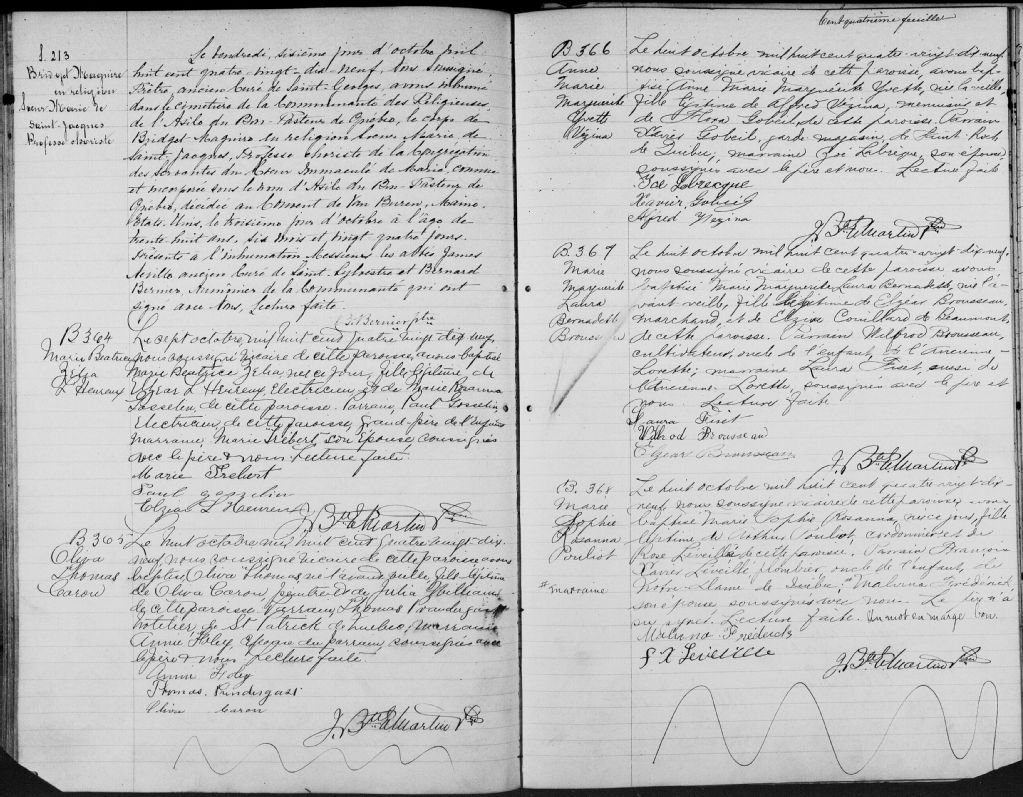 S. 213
Bridget Maguire
en religion
Soeur Marie de
Saint-Jacques
Professe choriste
Le vendredi, sixième jour d'octobre mil
huit cent quatre-vingt-dix-neuf, Nous soussigné,
Prêtre, ancien Curé de Saint-Georges, avons inhumé
dans le cimetière de la Communauté des Religieuses
de l'Asile du Bon-Pasteur de Québec, le corps de
Bridget Maguire en religion Soeur Marie de
Saint-Jacques, Professe choriste de la Congrégation
des Servantes du Coeur Immaculé de Marie, connue
et incorporée sous le nom d'Asile du Bon-Pasteur de
Québec, décédée au Couvent de Van Buren, Maine,
Etats-Unis, le troisième jour d'octobre à l'âge de
trente huit ans, six mois et vingt quatre jours.
Présents à l'inhumation Messieurs les abbés James
Neville ancien Curé de Saint-Sylvestre et Bernard
Bernier, Aumônier de la Communauté qui ont
signé avec Nous, lecture faite.
J. Bernier ptre
B 364
Marie Beatrice
Zélia
L'Heureux
Le sept octobre mil huit cent quatre vingt dix neuf,
nous soussigné vicaire de cette paroisse, avons baptisé
Marie Beatrice Zélia, née ce jour, fille légitime de
Elzéar L'Heureux, Electricien, et de Marie Rosanna
Gosselin, de cette paroisse. Parrain, Paul Gosselin,
Electricien, de cette paroisse, grand-père de l'enfant,
marraine, Marie Frébert son épouse, soussignés
avec le père & nous. Lecture faite.
Marie Frebert
Paul Gosselin
Elzear L Heureux
J. Bte E Martin Ptre
B 365
Oliva
Thomas
Caron
Le huit octobre mil huit cent quatre vingt dix
neuf, nous soussigné vicaire de cette paroisse avons
baptisé, Oliva Thomas né l'avant veille, fils légitime
de Oliva Caron, peintre & de Julia
de cette paroisse. Parrain, Thomas Prendergast
hotelier, de St Patrick de Quebec, marraine
Annie Foley, Epouse du parrain, soussignés avec
le père & nous. Lecture faite.
Annie Foley
Thomas Prendergast
Oliva Caron
J. Bte E Martin Ptre
Cent quatrième feuillet
B 366
Anne
Marie
Marguerite
Yvette
Vézina
Le huit octobre mil huit cent quatre-vingt-dix-neuf
nous soussigné vicaire de cette paroisse, avons bap-
tisé Anne Marie Marguerite Yvette, née la veille,
fille légitime de Alfred Vézina, menuisier et
de Flora Gobeil, de cette paroisse. Parrain
Xavier Gobeil, garde magasin, de Saint Roch
de Québec, marraine Zoé Labrèque, son épouse
soussignés avec le père et nous. Lecture faite
Zoé Labrecque
Xavier Gobeil
Alfred Vezina
J. Bte E Martin Ptre
B 367
Marie
Marguerite
Laura
Bernadette
Brousseau
Le huit octobre mil huit cent quatre-vingt-dix-neuf,
nous soussigné vicaire de cette paroisse avons
baptisé Marie Marguerite Laura Bernadette, née l'a-
vant-veille, fille légitime de Elzéar Brousseau,
marchand, et de Elzire Couillard de Beaumont,
de cette paroisse. Parrain Wilfrod Brousseau,
cultivateur, oncle de l'enfant, de l'Ancienne-
Lorette; marraine Laura Fiset, aussi de
l'Ancienne-Lorette, soussignés avec le père et
nous. Lecture faite.
Laura Fiset
Wilfrod Brousseau
Elzear Brousseau
J. Bte E Martin Ptre
B. 368
Marie
Sophie
Rosanna
Pouliot
# marraine
Le huit octobre mil huit cent quatre-vingt-dix-
neuf, nous soussigné vicaire de cette paroisse, avons
baptisé Marie Sophie Rosanna, née ce jour, fille
légitime de Pouliot, cordonnier et de
Rose Léveillé de cette paroisse. Parrain François
Xavier Léveillé plombier, oncle de l'enfant, de
Notre-Dame de Québec, # Malvina Frédérick
son épouse, soussignés avec nous. Le père n'a
pu signer. Lecture faite. Un mot en marge bon.
Malvina Frederick
F X Leveille
J. Bte E Martin Ptre